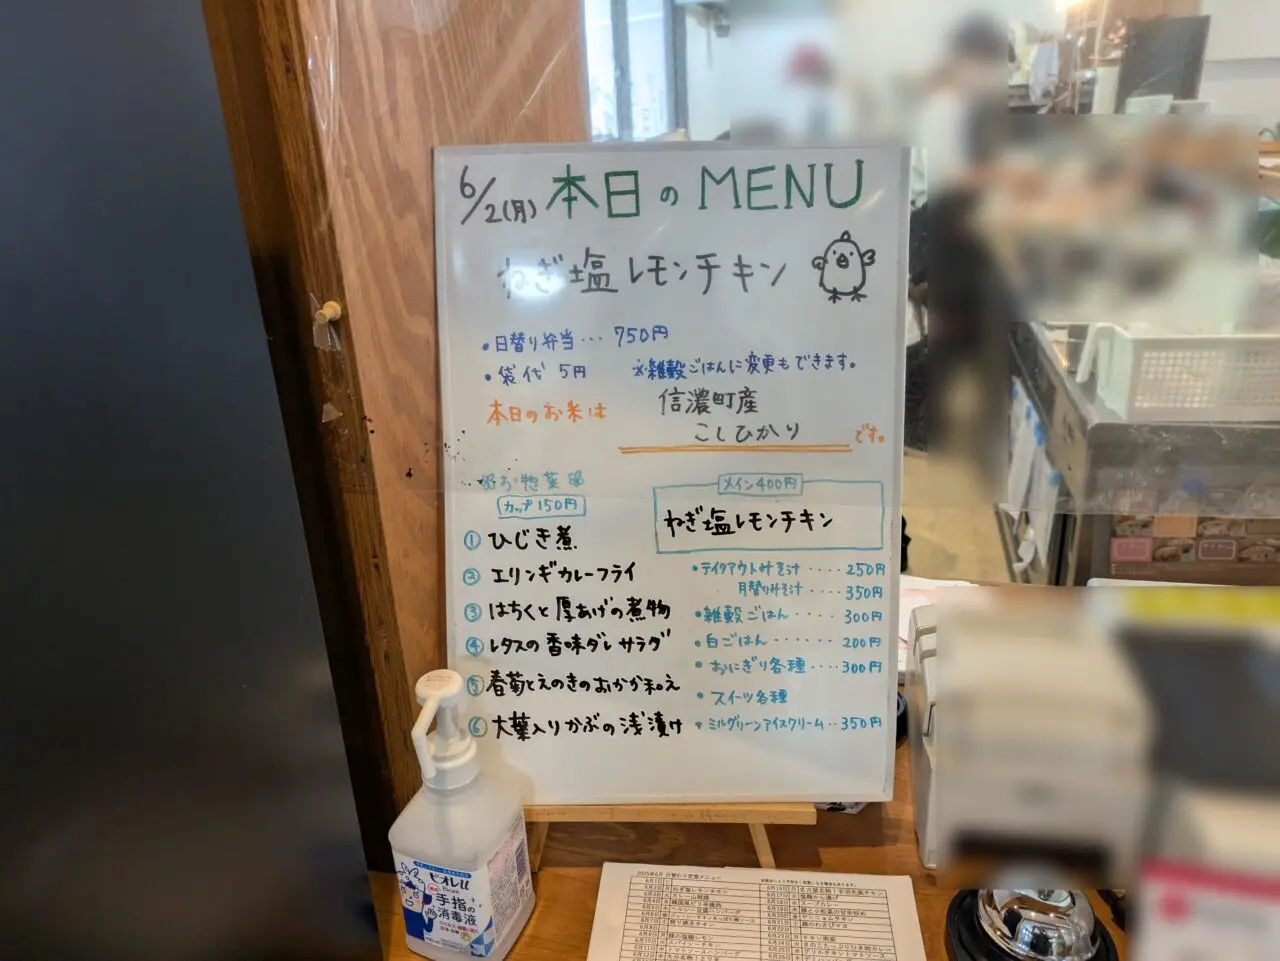 6/2(月) 本日の MENU
ねぎ塩レモンチキン
・日替り弁当… 750円
・袋代 5円 ※雑穀ごはんに変更もできます。
本日のお米は 信濃町産
こしひかり です。
お惣菜
カップ150円
① ひじき煮
② エリンギカレーフライ
③ はちくと厚あげの煮物
④ レタスの香味ダレサラダ
⑤ 春菊とえのきのおかか和え
⑥ 大葉入りかぶの浅漬け
メイン400円
ねぎ塩レモンチキン
・テイクアウトみそ汁‥‥250円
月替りみそ汁‥‥350円
・雑穀ごはん‥‥‥300円
・白ごはん‥‥‥200円
・おにぎり各種‥‥300円
・スイーツ各種
・ミルグリーンアイスクリーム‥350円
ビオレu
手指の
消毒液
2025年6月 日替わり定食メニュー